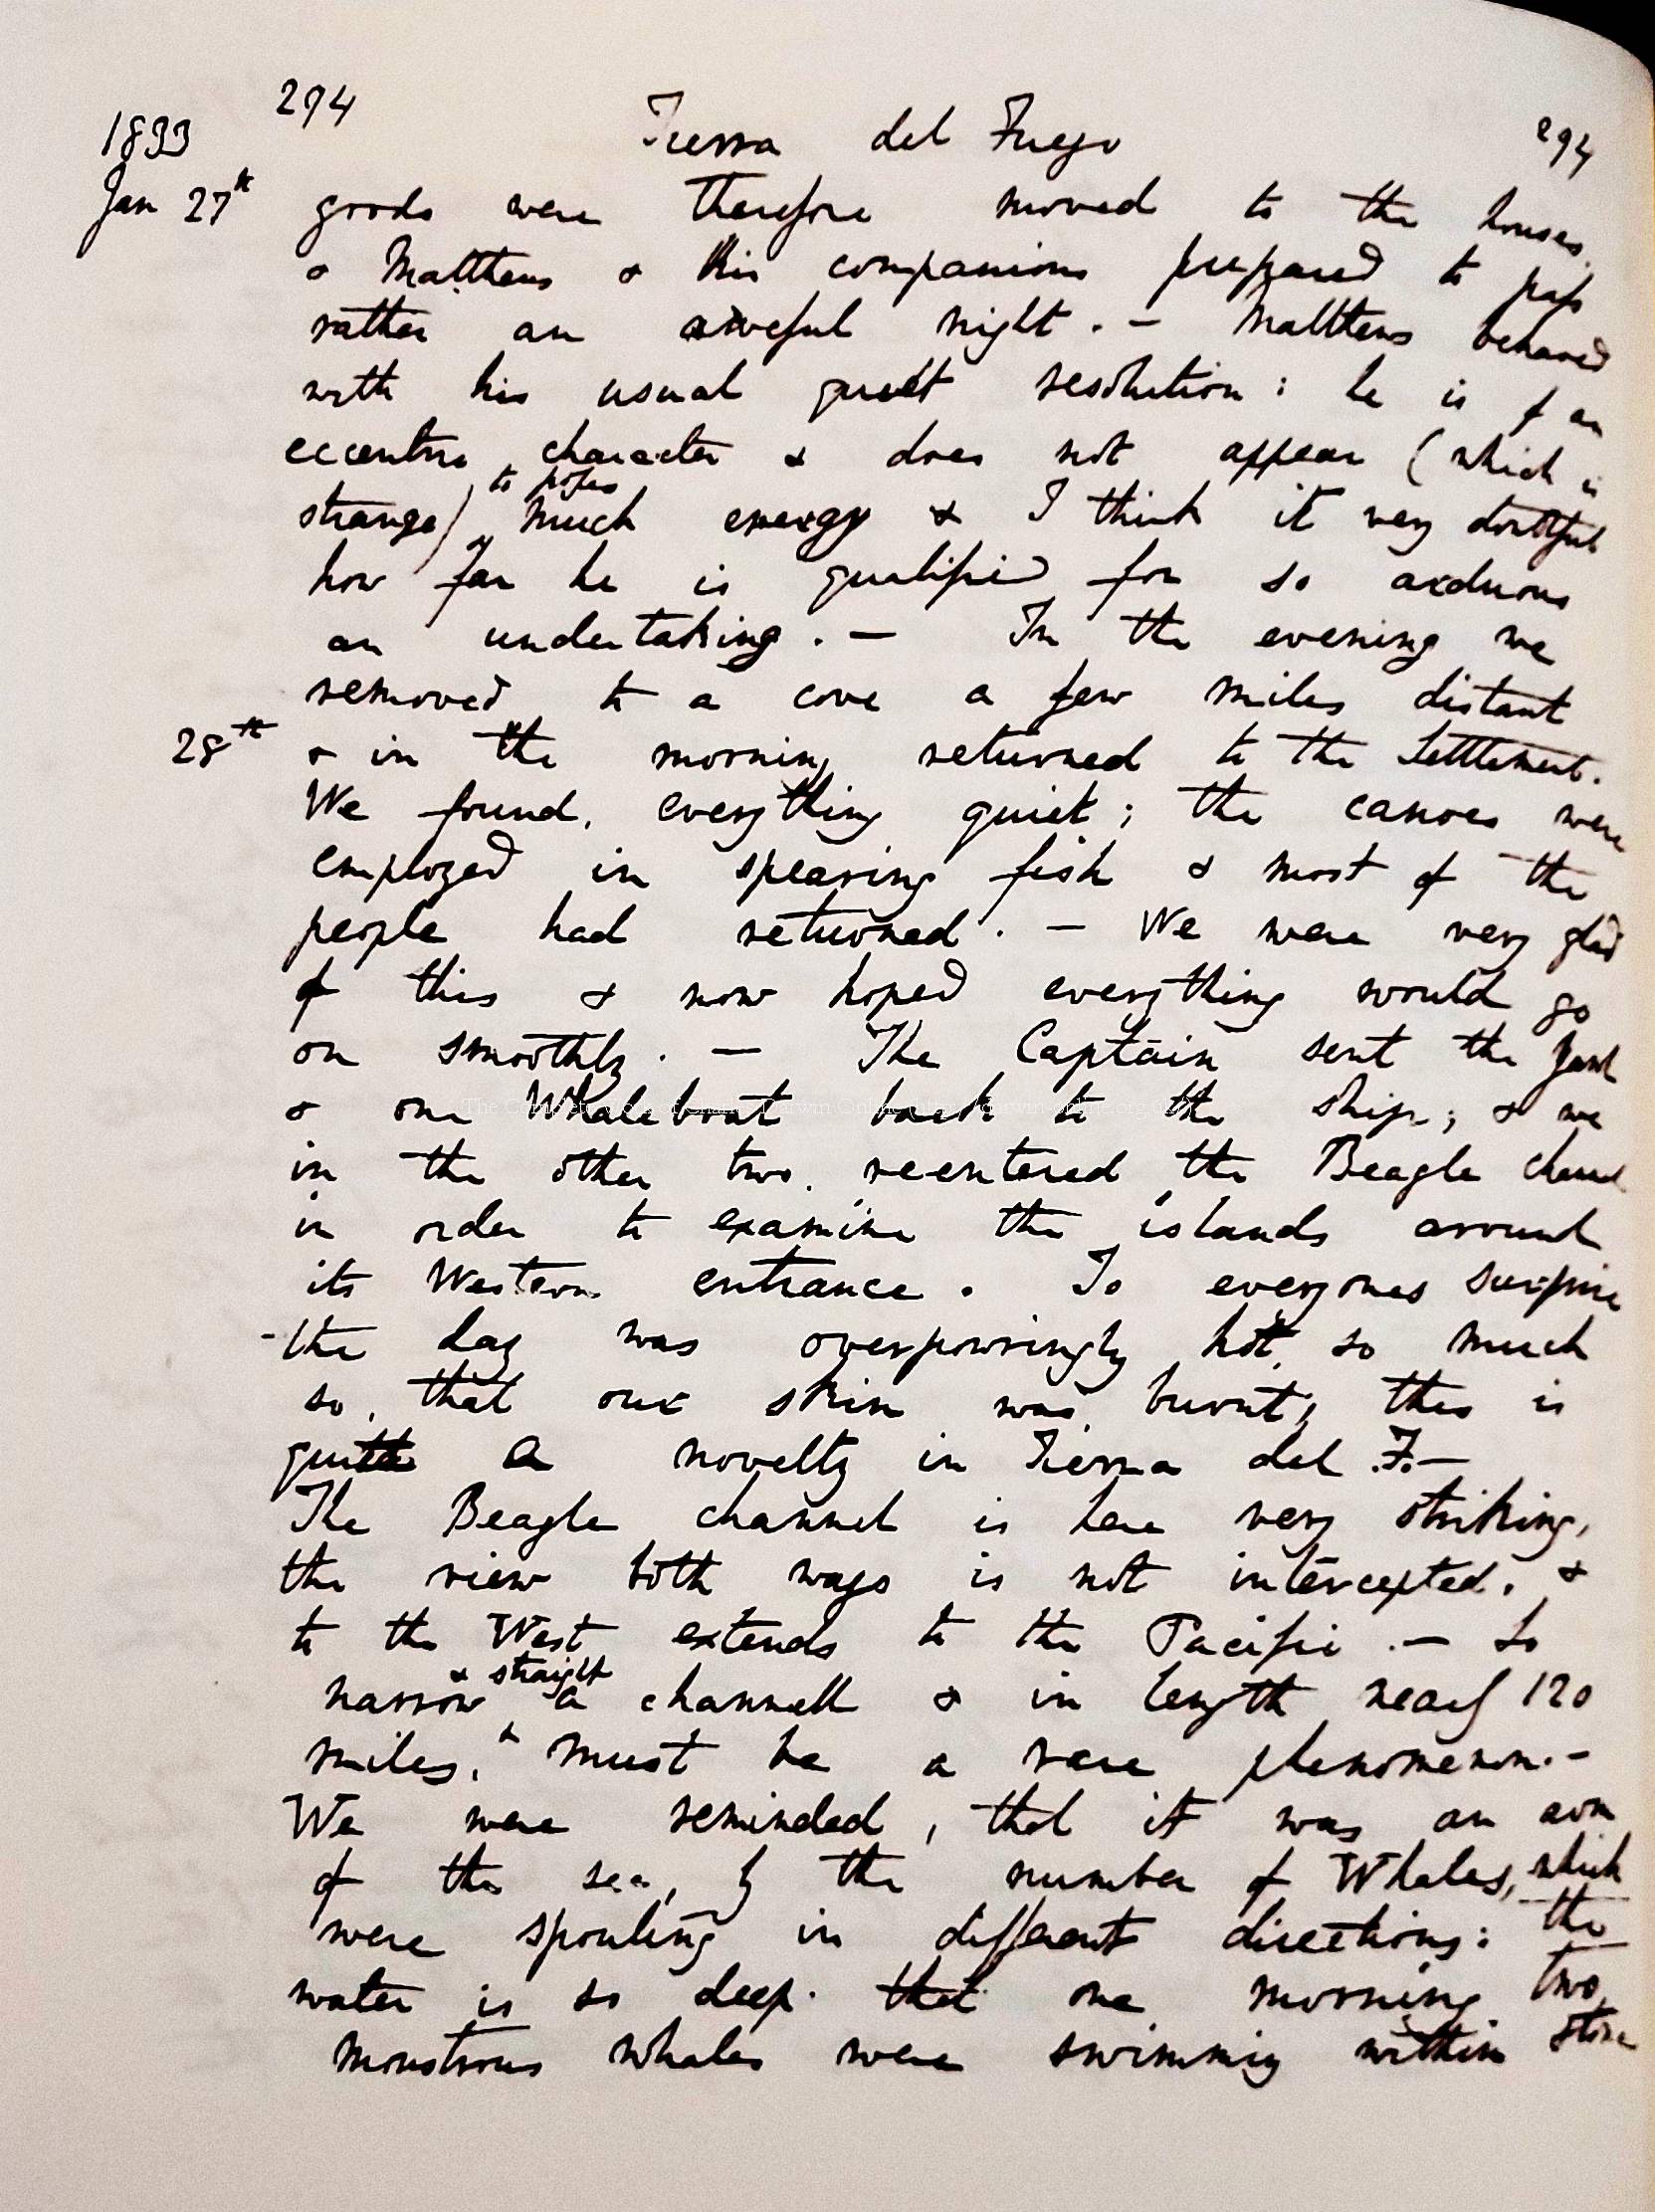 294
1833 Tierra del Fuego 294
Jan 27th goods were therefore moved to the houses,
& Matthews & his companions prepared to pass
rather an aweful night. — Matthews behaved
with his usual quiet resolution: he is of an
eccentric character & does not appear (which is
to posess
strange) much energy & I think it very doubtful
how far he is qualified for so arduous
an undertaking. — In the evening we
removed to a cove a few miles distant
28th & in the morning returned to the Settlement.
We found everything quiet; the canoes were
employed in spearing fish & most of the
people had returned. — We were very glad
of this & now hoped everything would go
on smoothly. — The Captain sent the Yawl
& one Whale boat back to the ship; & we
in the other two, re-entered the Beagle channel
in order to examine the islands around
its Western entrance. To everyones surprise
the day was overpowringly hot, so much
so, that our skin was burnt; this is
quite a novelty in Tierra del F. —
The Beagle channel is here very striking,
the view both ways is not intercepted, &
to the West extends to the Pacific. — So
& straight
narrow a channell & in length nearly 120
miles, must be a rare phenomenon. —
We were reminded, that it was an arm
of the sea, by the number of Whales, which
were spouting in different directions: the
water is so deep that one morning two
monstrous whales were swimming within stone